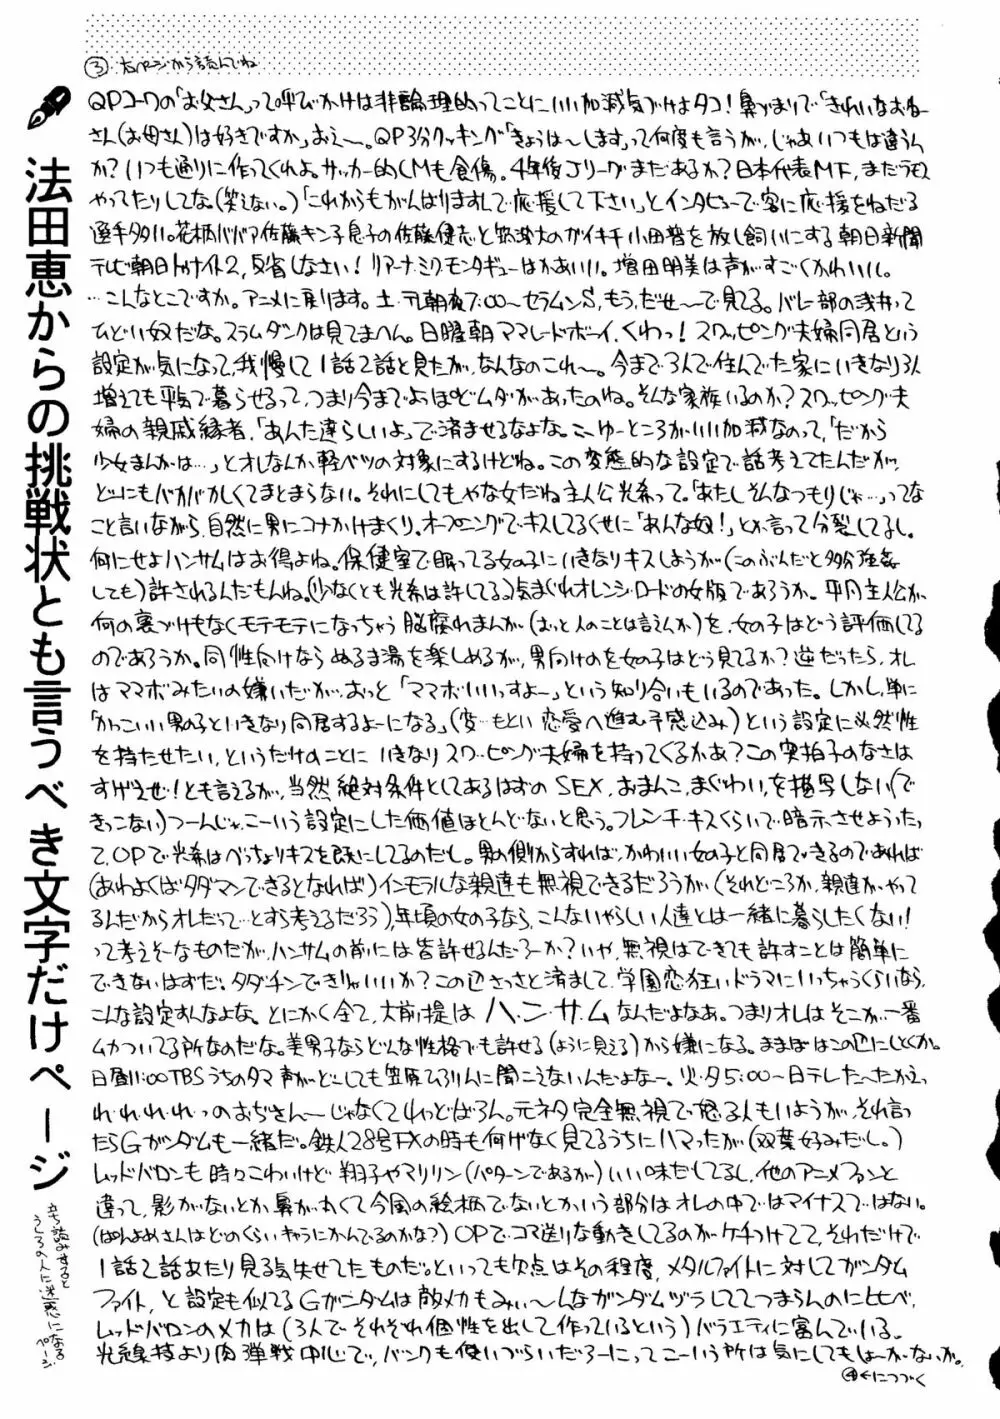 ③ 右ページから読んでね
QPコーワの「お父さん」って呼びかけは非論理的ってことにいい加減気づけよタコ！鼻づまりで「きれいなお母
さん(お母さん)は好きですか」おえ〜。QP3分クッキング「きょうは〜します」って何度も言うが、じゃあいつもは違うん
か？いつも通りに作ってくれよ。サッカー的CMも食傷。4年後Jリーグまだあるか？日本代表MF、まだラモス
やってたりしてな。(笑えない。)「これからもがんばりますんで応援して下さい」とインタビューで客に応援をねだる
選手多い。花柄ババア佐藤キン子息子の佐藤健志と筑波大のガイキチ小田晋を放し飼いにする朝日新聞
テレビ朝日トゥナイト2，反省しなさい！リアーナ・ミク・モンタギューはかあいい。増田明美は声がすごくかわいい。
…こんなとこですか。アニメに戻ります。土・テレ朝夜7:00〜セラムンS，もう，だせ〜で見てる。バレー部の浅井って
ひどい奴だな。スラムダンクは見てまへん。日曜朝ママレードボーイ，くわっ！スワッピング夫婦同居という
設定が気になって，我慢して1話2話と見たが，なんなのこれ〜。今まで3人で住んでた家にいきなり3人
増えても平気で暮らせるって，つまり今までよほどムダがあったのね。そんな家族いるのか？スワッピング夫
婦の親戚縁者，「あんた達らしいよ」で済ませるなよな。こーゆーところがいい加減なのって，「だから
少女まんがは…」とオレなんか軽ベツの対象にするけどね。この変態的な設定で話考えてたんだが，
どーにもバカバカしくてまとまらない。それにしてもやな女だね主人公光希って。「あたしそんなつもりじゃ…」ってな
こと言いながら，自然に男にコナかけまくり，オープニングでキスしてるくせに「あんな奴！」とか言って分裂してるし。
何にせよハンサムはお得よね。保健室で眠ってる女の子にいきなりキスしようが(このぶんだと多分強姦
しても)許されるんだもんね。(少なくとも光希は許してる)気まぐれオレンジ・ロードの女版であろうか。平凡主人公が
何の裏づけもなくモテモテになっちゃう脳腐れまんが(おっと人のことは言えんか)を，女の子はどう評価してる
のであろうか。同性向けならぬるま湯を楽しめるが，男向けのを女の子はどう見てるか？逆だったら，オレ
はママボみたいの嫌いだが，おっと「ママボいいっすよ〜」という知り合いもいるのであった。しかし，単に
「かっこいい男の子といきなり同居するよーになる」(変…もとい恋愛へ進む予感込み)という設定に必然性
を持たせたい，というだけのことにいきなりスワッピング夫婦を持ってくるかあ？この突拍子のなさは
すげえぜ！とも言えるが，当然絶対条件としてあるはずのSEX，おまんこ，まぐわい，を描写しない(で
きっこない)つーんじゃ，こーいう設定にした価値ほとんどないと思う。フレンチ・キスくらいで暗示させようたっ
て，OPで光希はべっちょりキスを既にしてるのだし。男の側からすれば，かわいい女の子と同居できるのであれば
(あわよくばタダマンできるとなれば)インモラルな親達も無視できるだろうが，(それどころか，親達がやって
るんだからオレだって…とすら考えるだろう)年頃の女の子なら，こんないやらしい人達とは一緒に暮らしたくない！
って考えそーなものだが，ハンサムの前には皆許せるんだろーか？いや，無視はできても許すことは簡単に
できないはずだ。タダチンできりゃいいか？この辺さっさと済まして，学園恋狂いドラマにいっちゃうくらいなら，
こんな設定すんなよな。とにかく全て，大前提はハ・ン・サ・ムなんだよなあ。つまりオレはそこが一番
ムカついてる所なのだな。美男子ならどんな性格でも許せる(ように見える)から嫌になる。ままぼはこの辺にしとくか。
日曜11:00TBSうちのタマ声がどーしても笠原ひろりんに聞こえないんだよな〜。火・夕5:00〜日テレた〜たかえっ
れ・れ・れ・れ・っのおぢさん〜じゃなくてれっどばろん。元ネタ完全無視で怒る人もいようが，それ言っ
たらGガンダムも一緒だ。鉄人28号FXの時も何げなく見てるうちにハマったが(双葉好みだし。)
レッドバロンも時々こわいけど翔子やマリリン(パターンであるが)いい味だしてるし，他のアニメファンと
違って，影がないとか，鼻が丸くて今風の絵柄でないとかいう部分はオレの中ではマイナスではない。
(ぱんよめさんはどのくらいキャラにかんでるのかな？)OPでコマ送りな動きしてるのがケチつけてて，それだけで
1話2話あたり見る気失せてたものだ。といっても欠点はその程度，メタルファイトに対してガンダム
ファイト，と設定も似てるGガンダムは敵メカもみぃ〜んなガンダムヅラしててつまらんのに比べ，
レッドバロンのメカは(3人でそれぞれ個性を出して作っているという)バラエティに富んでいる。
光線技より肉弾戦中心で，バンクも使いづらいだろーにってこーいう所は気にしてもしょーがないか。
④へつづく
法田恵からの挑戦状とも言うべき文字だけページ
立ち読みすると
うしろの人に迷惑になる
ページ